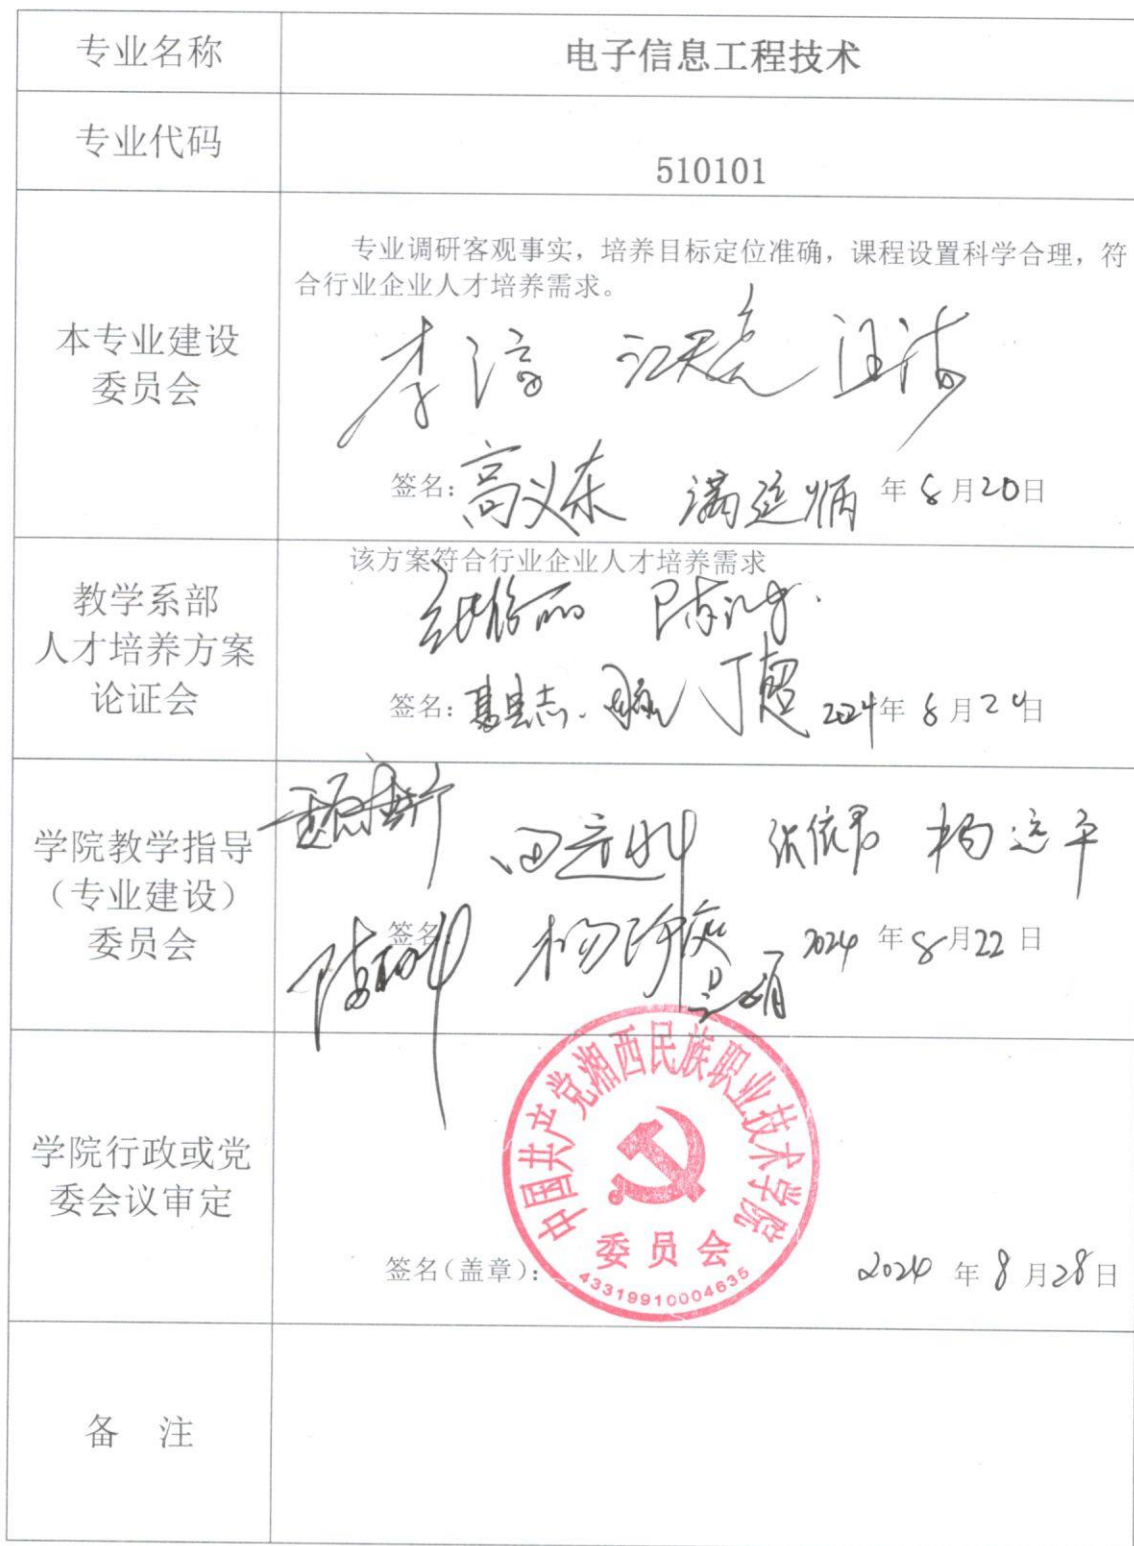 专业名称
电子信息工程技术
专业代码
510101
本专业建设
委员会
专业调研客观事实，培养目标定位准确，课程设置科学合理，符
合行业企业人才培养需求。
李淳
签名：高义东 满延炳 年8月20日
教学系部
人才培养方案
论证会
该方案符合行业企业人才培养需求
签名： 丁超 2024年8月20日
学院教学指导
（专业建设）
委员会
张依君 杨远平
签名： 2024年8月22日
学院行政或党
委会议审定
中国共产党湘西民族职业技术学院
委员会
43319910004635
签名（盖章）： 2024年8月28日
备 注